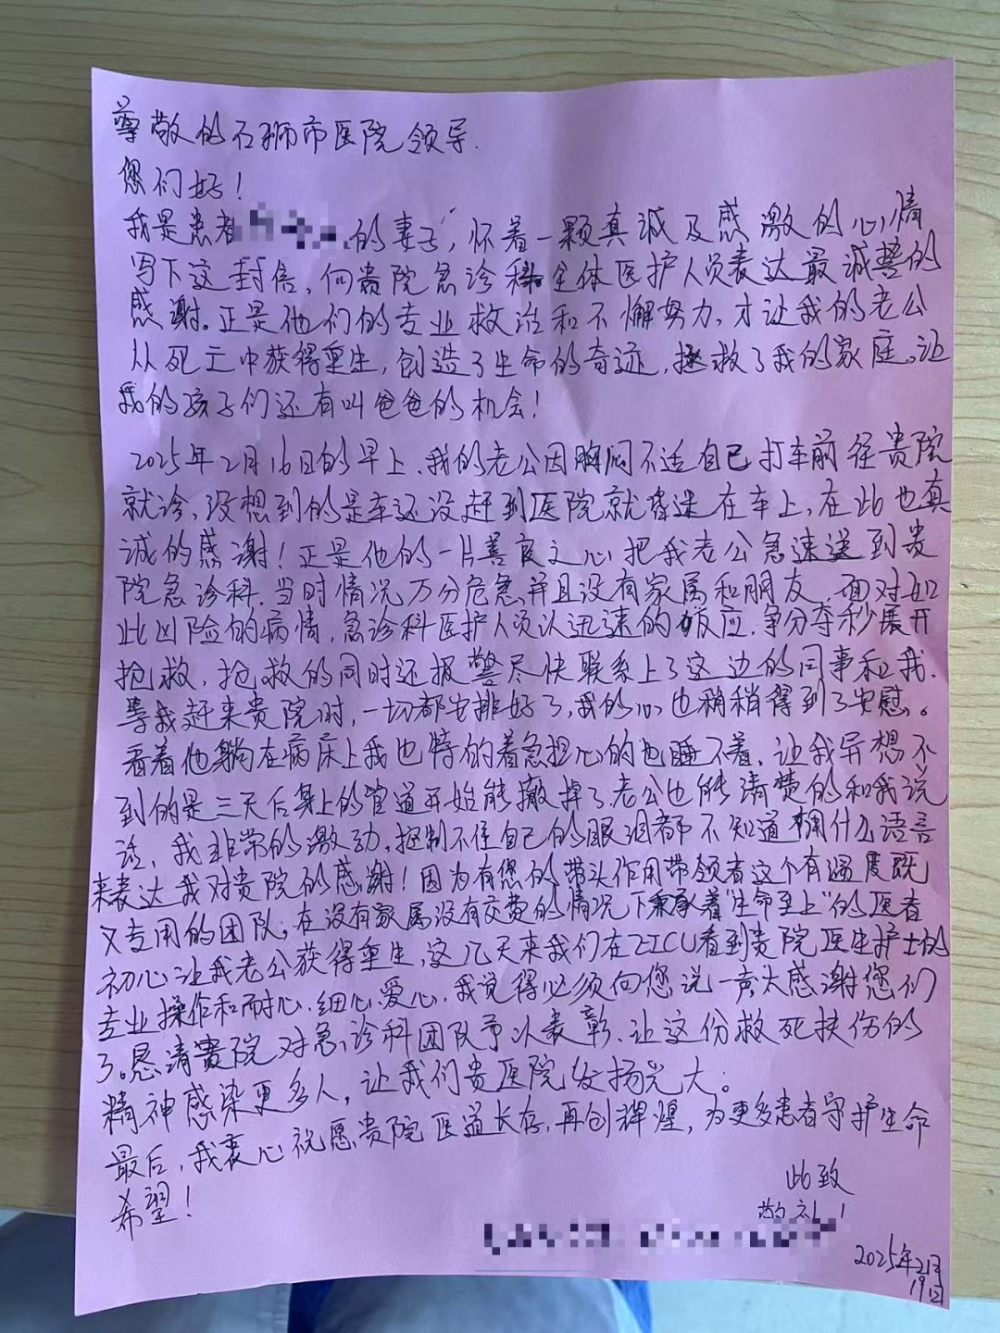 尊敬的石狮市医院领导.
您们好!
我是患者 的妻子,怀着一颗真诚及感激的心情
写下这封信,向贵院急诊科全体医护人员表达最诚挚的
感谢.正是他们的专业救治和不懈努力,才让我的老公
从死亡中获得重生,创造了生命的奇迹,拯救了我的家庭,让
我的孩子们还有叫爸爸的机会!
2025年2月16日的早上,我的老公因胸闷不适自己打车前往贵院
就诊,没想到的是车还没赶到医院就昏迷在车上,在此也真
诚的感谢!正是他的一片善良之心把我老公急速送到贵
院急诊科.当时情况万分危急并且没有家属和朋友,面对如
此凶险的病情,急诊科医护人员以迅速的反应,争分夺秒展开
抢救,抢救的同时还报警尽快联系上了这边的同事和我.
等我赶来贵院时,一切都安排好了,我的心也稍稍得到了安慰。
看着他躺在病床上我也特的着急担心的也睡不着,让我异想不
到的是三天后身上的管道开始能撤掉了老公也能清楚的和我说
话,我非常的激动,控制不住自己的眼泪都不知道用什么语言
来表达我对贵院的感谢!因为有您的带头作用带领着这个有温度既
又专用的团队,在没有家属没有交费的情况下秉承着"生命至上"的医者
初心让我老公获得重生,这几天来我们在EICU看到贵院医生护士的
专业操作和耐心.细心爱心,我觉得必须向您说一声大感谢您们
了。恳请贵院对急诊科团队予以表彰,让这份救死扶伤的
精神感染更多人,让我们贵医院发扬光大。
最后,我衷心祝愿贵院医道长存,再创辉煌,为更多患者守护生命
希望!
此致
敬礼!
2025年2月
19日